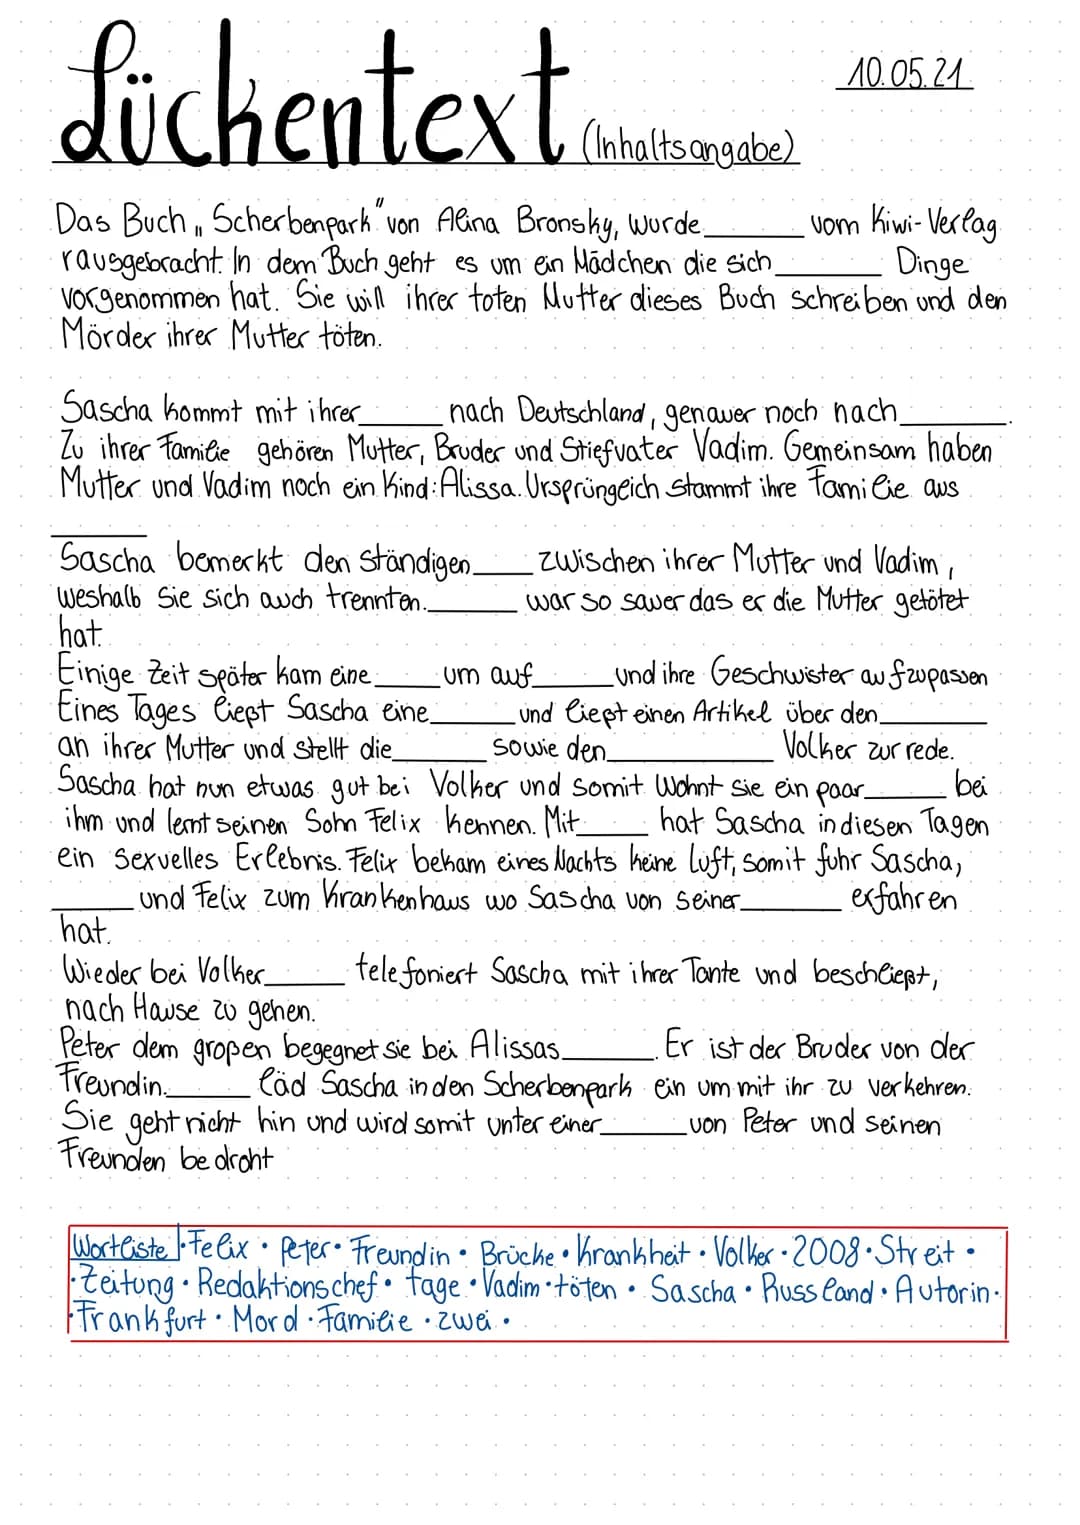 Lückentext (Inhaltsangabe) 10.05.21
Das Buch „Scherbenpark" von Alina Bronsky, wurde ______ vom Kiwi-Verlag
rausgebracht. In dem Buch geht es um ein Mädchen die sich ______ Dinge
vorgenommen hat. Sie will ihrer toten Mutter dieses Buch schreiben und den
Mörder ihrer Mutter töten.
Sascha kommt mit ihrer ______ nach Deutschland, genauer noch nach ______.
Zu ihrer Familie gehören Mutter, Bruder und Stiefvater Vadim. Gemeinsam haben
Mutter und Vadim noch ein Kind: Alissa. Ursprüngeich stammt ihre Familie aus
______
Sascha bemerkt den ständigen ______ zwischen ihrer Mutter und Vadim,
weshalb Sie sich auch trennten. ______ war so sauer das er die Mutter getötet
hat.
Einige Zeit später kam eine ______ um auf ______ und ihre Geschwister aufzupassen
Eines Tages ließt Sascha eine ______ und ließt einen Artikel über den ______
an ihrer Mutter und stellt die ______ sowie den ______ Volker zur rede.
Sascha hat nun etwas gut bei Volker und somit Wohnt sie ein paar ______ bei
ihm und lernt seinen Sohn Felix kennen. Mit ______ hat Sascha in diesen Tagen
ein sexuelles Erlebnis. Felix bekam eines Nachts keine Luft, somit fuhr Sascha,
______ und Felix zum Krankenhaus wo Sascha von seiner ______ erfahren
hat.
Wieder bei Volker ______ telefoniert Sascha mit ihrer Tante und beschließt,
nach Hause zu gehen.
Peter dem großen begegnet sie bei Alissas ______. Er ist der Bruder von der
Freundin. ______ läd Sascha in den Scherbenpark ein um mit ihr zu verkehren.
Sie geht nicht hin und wird somit unter einer ______ von Peter und seinen
Freunden bedroht
Wortliste • Felix • Peter • Freundin • Brücke • Krankheit • Volker • 2008 • Streit •
• Zeitung • Redaktionschef • tage • Vadim • töten • Sascha • Russland • Autorin •
• Frankfurt • Mord • Familie • zwei •